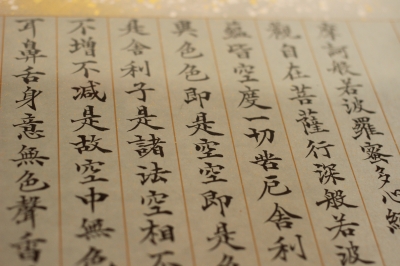 摩訶般若波羅蜜多心經
觀自在菩薩行深般若波
蘊皆空度一切苦厄舍利
異色色即是空空即是色
是舍利子是諸法空相不
不增不減是故空中無色
耳鼻舌身意無色聲香